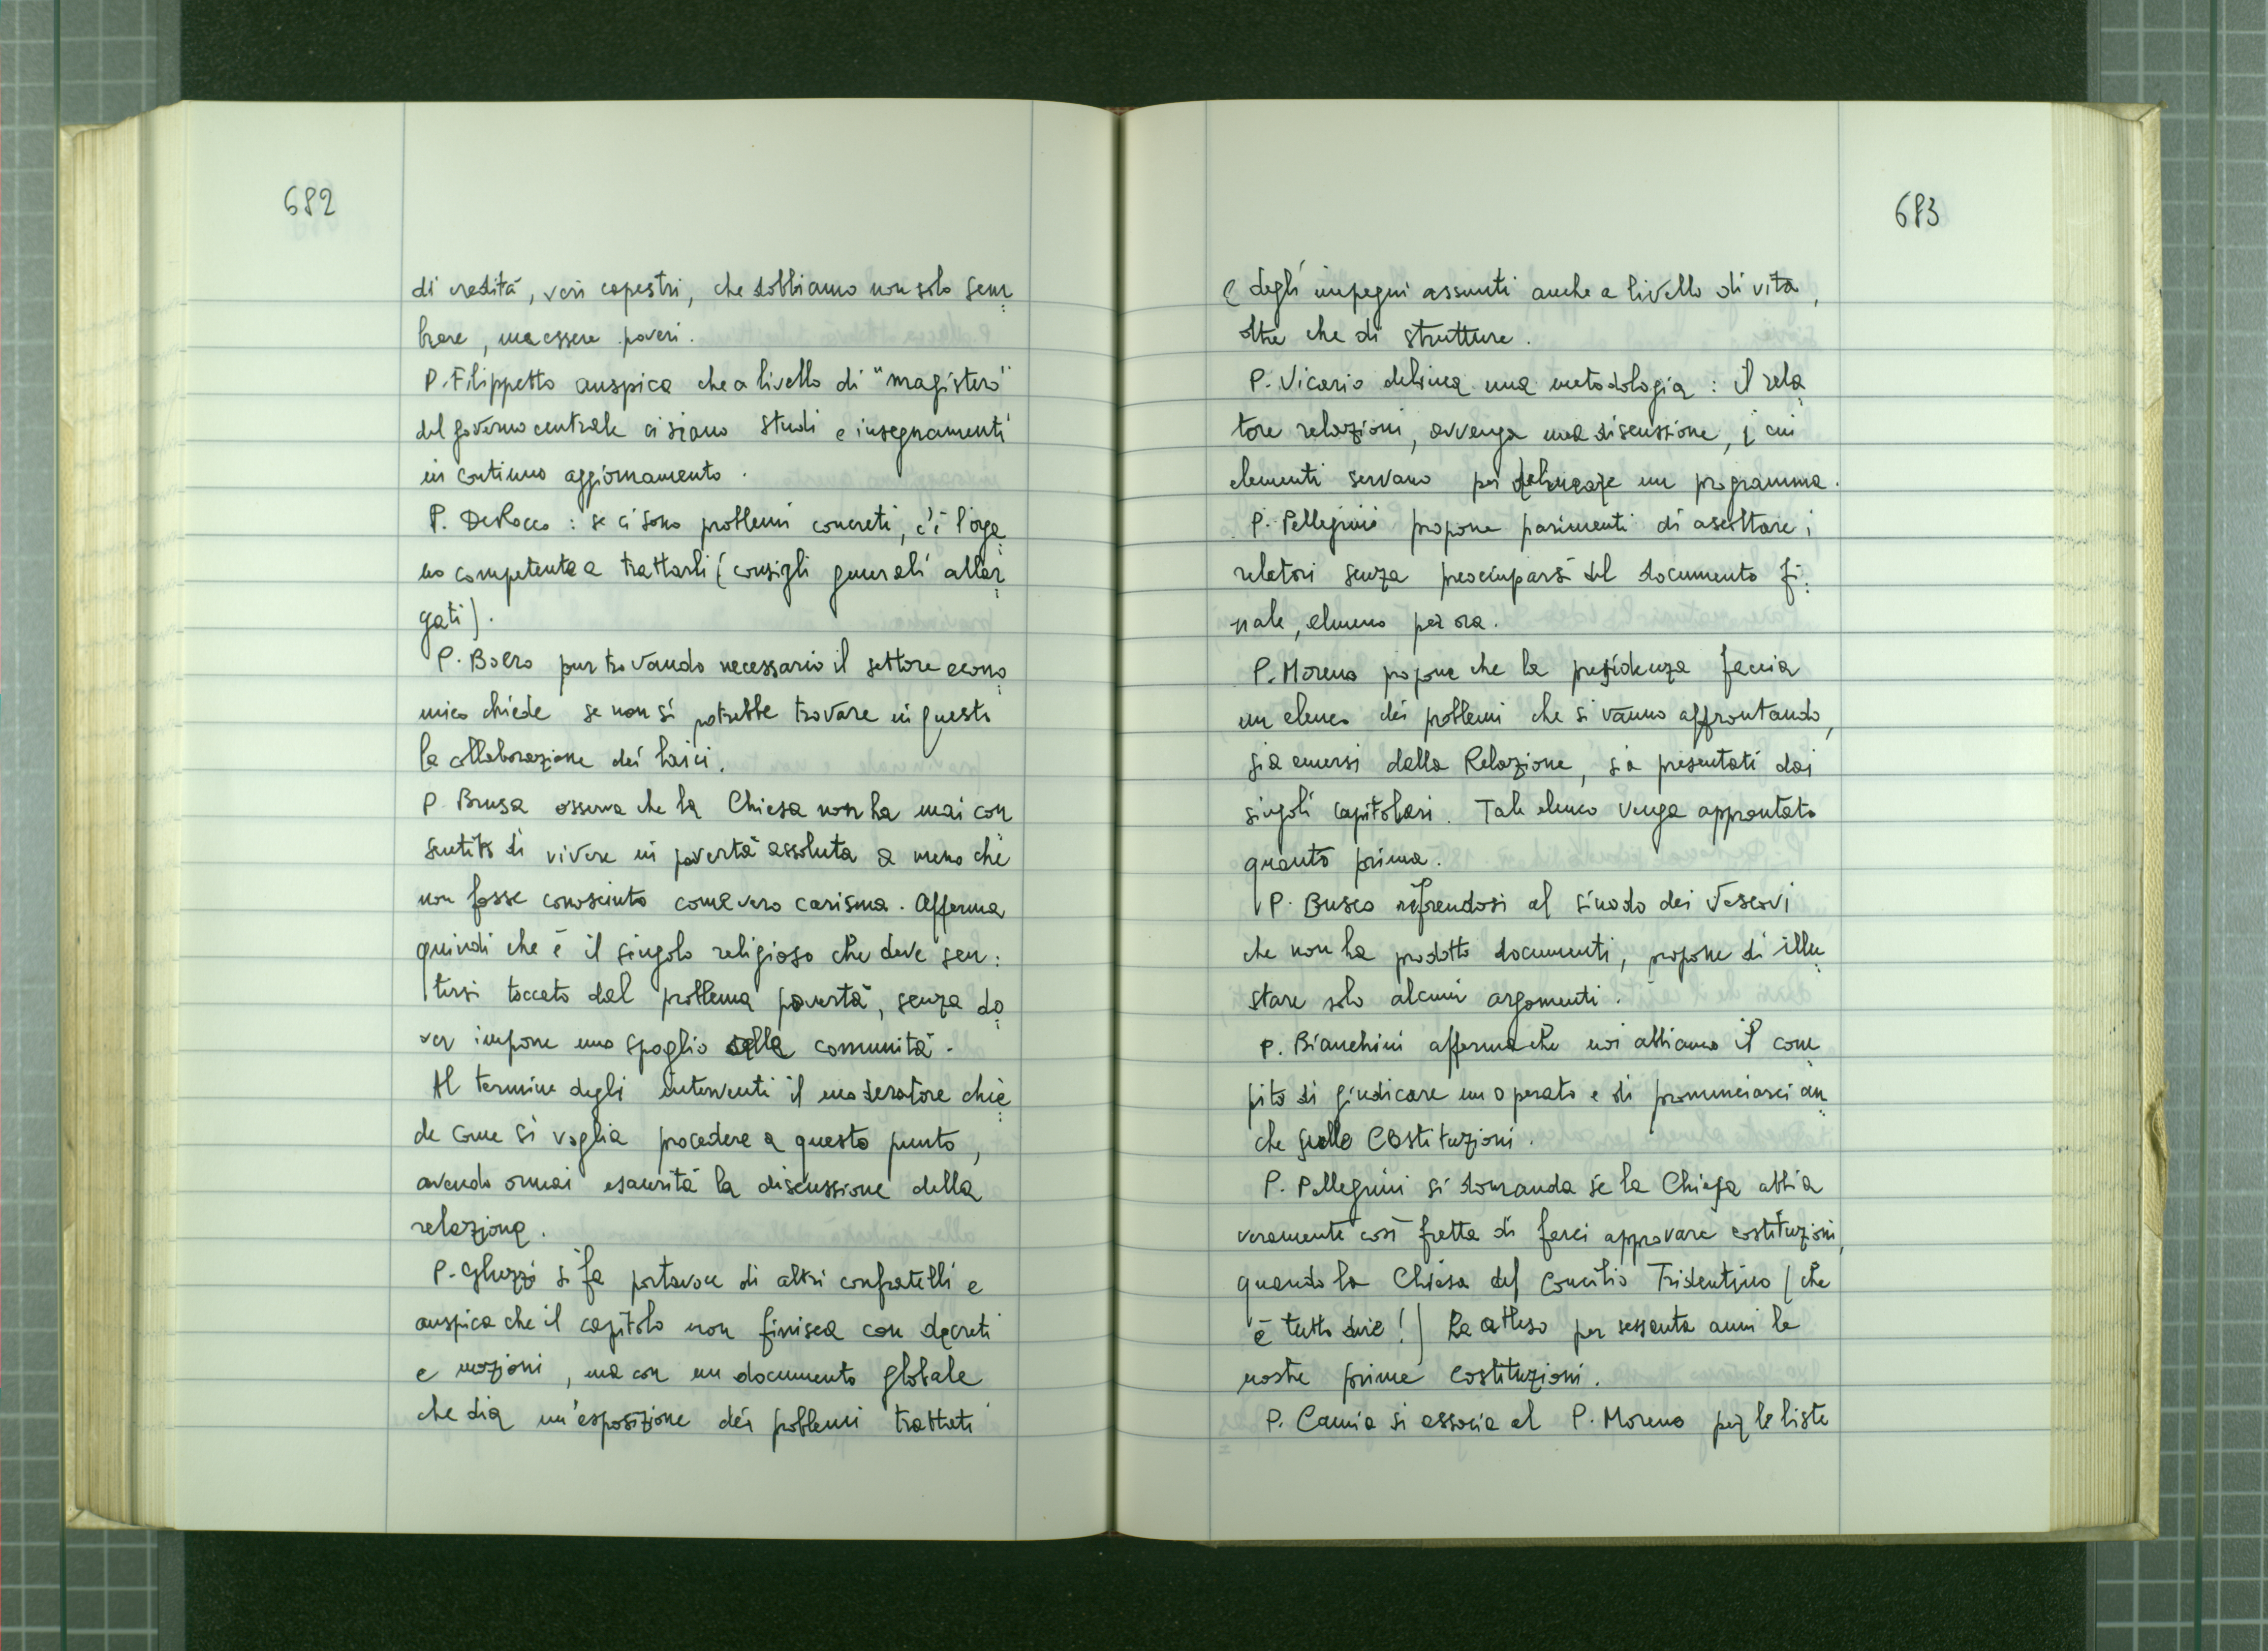 682
di eredità, veri capestri, che dobbiamo non solo sem=
brare, ma essere poveri.
P. Filippetto auspica che a livello di "magistero"
del governo centrale ci siano studi e insegnamenti
in continuo aggiornamento.
P. DeRocco : se ci sono problemi concreti, c'è l'orga=
no competente a trattarli (consigli generali allar=
gati).
P. Boero pur trovando necessario il settore econo=
mico chiede se non si potrebbe trovare in questo
la collaborazione dei laici.
P. Brusa osserva che la Chiesa non ha mai con
sentito di vivere in povertà assoluta a meno che
non fosse conosciuto come vero carisma. Afferma
quindi che è il singolo religioso che deve sen=
tirsi toccato dal problema povertà, senza do=
ver imporre uno spoglio alla comunità.
Al termine degli interventi il moderatore chie=
de come si voglia procedere a questo punto,
avendo ormai esaurita la discussione della
relazione.
P. Ghezzi si fa portavoce di altri confratelli e
auspica che il capitolo non finisca con decreti
e mozioni, ma con un documento globale
che dia un'esposizione dei problemi trattati
683
e degli impegni assunti anche a livello di vita,
oltre che di strutture.
P. Vicario delinea una metodologia : il rela=
tore relazioni, avvenga una discussione, i cui
elementi servano per delineare un programma.
P. Pellegrini propone parimenti di ascoltare i
relatori senza preoccuparsi del documento fi=
nale, almeno per ora.
P. Moreno propone che la presidenza faccia
un elenco dei problemi che si vanno affrontando,
sia emersi dalla Relazione, sia presentati dai
singoli capitolari. Tale elenco venga approntato
quanto prima.
P. Busco riferendosi al sinodo dei Vescovi
che non ha prodotto documenti, propone di illu=
strare solo alcuni argomenti.
P. Bianchini afferma che noi abbiamo il com
pito di giudicare un operato e di pronunciarci an=
che sulle Costituzioni.
P. Pellegrini si domanda se la Chiesa abbia
veramente così fretta di farci approvare costituzioni,
quando la Chiesa del Concilio Tridentino (che
è tutto dire!) ha atteso per sessanta anni le
nostre prime costituzioni.
P. Camia si associa al P. Moreno per le liste